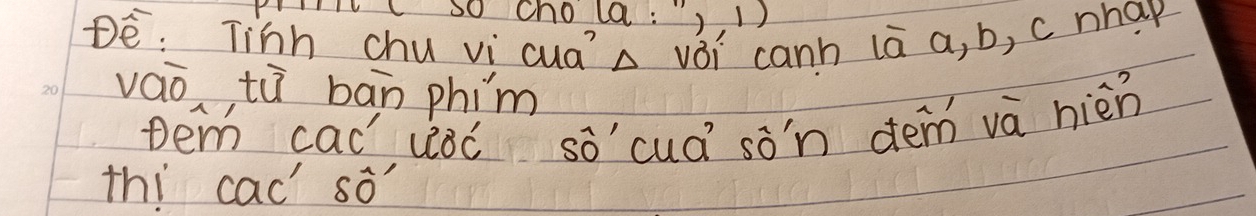 print ( "số cho là: ", i)
Đề: Tính chu vi của △ với cạnh là a, b, c nhập
vào từ bàn phím
Đếm các ước số của số n đếm và hiển
thị các số
20